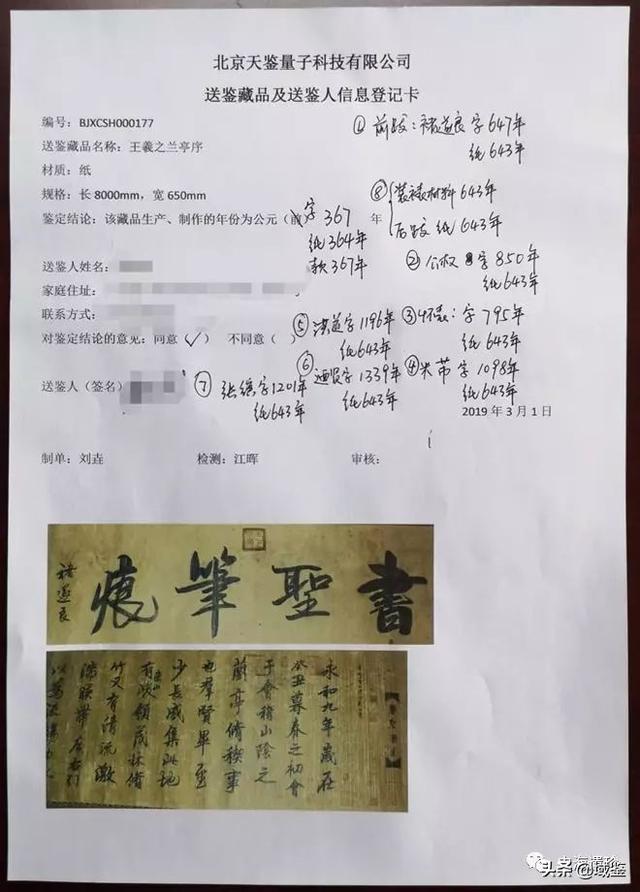 北京天鉴量子科技有限公司
送鉴藏品及送鉴人信息登记卡
编号：BJXCSH000177
送鉴藏品名称：王羲之兰亭序
材质：纸
规格：长 8000mm，宽 650mm
鉴定结论：该藏品生产、制作的年份为公元（前） 字 367 年
纸 364年
款 367年
① 前跋：褚遂良 字 647年
纸 643年
⑧ 装裱材料 643年
后跋 纸 643年
② 公权 字 850年
纸643年
送鉴人姓名：
家庭住址：
联系方式：
对鉴定结论的意见：同意（✓） 不同意（ ）
③ 字 795年
纸 643年
④ 米芾 字 1098年
纸643年
⑤ 字 1196年
纸643年
⑥ 字 1339年
纸643年
⑦ 字 1201年
纸 643年
送鉴人（签名）
2019 年 3 月 1 日
制单：刘垚 检测：江晖 审核：
書聖筆痕
褚遂良
永和九年歲在
癸丑暮春之初會
于會稽山陰之
蘭亭脩稧事
也羣賢畢至
少長咸集此地
有崇山
峻領茂林脩
竹又有清流激
湍暎帶左右引
以為流
头条@域鉴